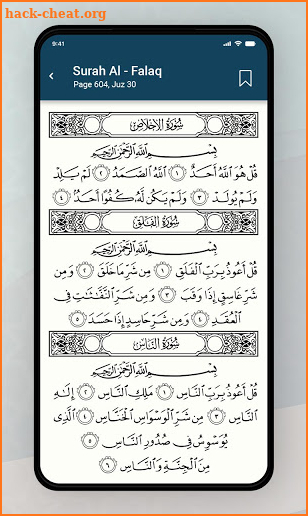 hack-cheat.org
9:41
Surah Al - Falaq
Page 604, Juz 30
سُورَةُ الإِخْلَاصِ
بِسْمِ ٱللَّهِ ٱلرَّحْمَٰنِ ٱلرَّحِيمِ
قُلْ هُوَ ٱللَّهُ أَحَدٌ ١ ٱللَّهُ ٱلصَّمَدُ ٢ لَمْ يَلِدْ
وَلَمْ يُولَدْ ٣ وَلَمْ يَكُن لَّهُۥ كُفُوًا أَحَدٌۢ ٤
سُورَةُ الْفَلَقِ
بِسْمِ ٱللَّهِ ٱلرَّحْمَٰنِ ٱلرَّحِيمِ
قُلْ أَعُوذُ بِرَبِّ ٱلْفَلَقِ ١ مِن شَرِّ مَا خَلَقَ ٢ وَمِن
شَرِّ غَاسِقٍ إِذَا وَقَبَ ٣ وَمِن شَرِّ ٱلنَّفَّٰثَٰتِ فِى
ٱلْعُقَدِ ٤ وَمِن شَرِّ حَاسِدٍ إِذَا حَسَدَ ٥
سُورَةُ النَّاسِ
بِسْمِ ٱللَّهِ ٱلرَّحْمَٰنِ ٱلرَّحِيمِ
قُلْ أَعُوذُ بِرَبِّ ٱلنَّاسِ ١ مَلِكِ ٱلنَّاسِ ٢ إِلَٰهِ
ٱلنَّاسِ ٣ مِن شَرِّ ٱلْوَسْوَاسِ ٱلْخَنَّاسِ ٤ ٱلَّذِى
يُوَسْوِسُ فِى صُدُورِ ٱلنَّاسِ ٥
مِنَ ٱلْجِنَّةِ وَٱلنَّاسِ ٦
hack-cheat.org